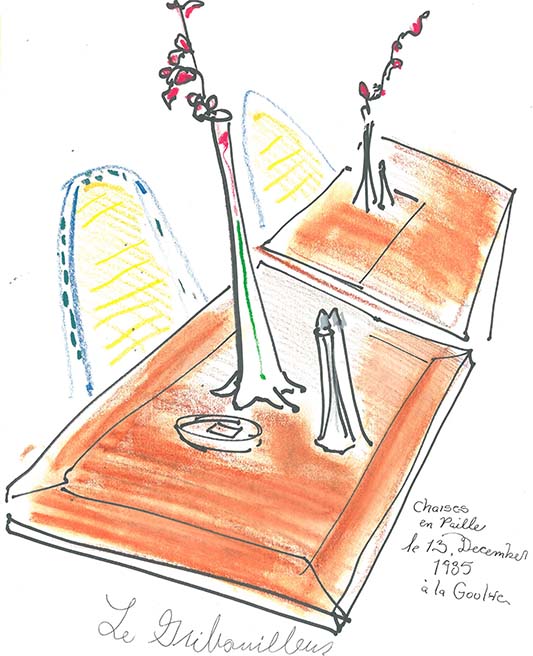 Chaises
en Paille
le 13, December
1985
à la Goulue
Le Gribouilleur